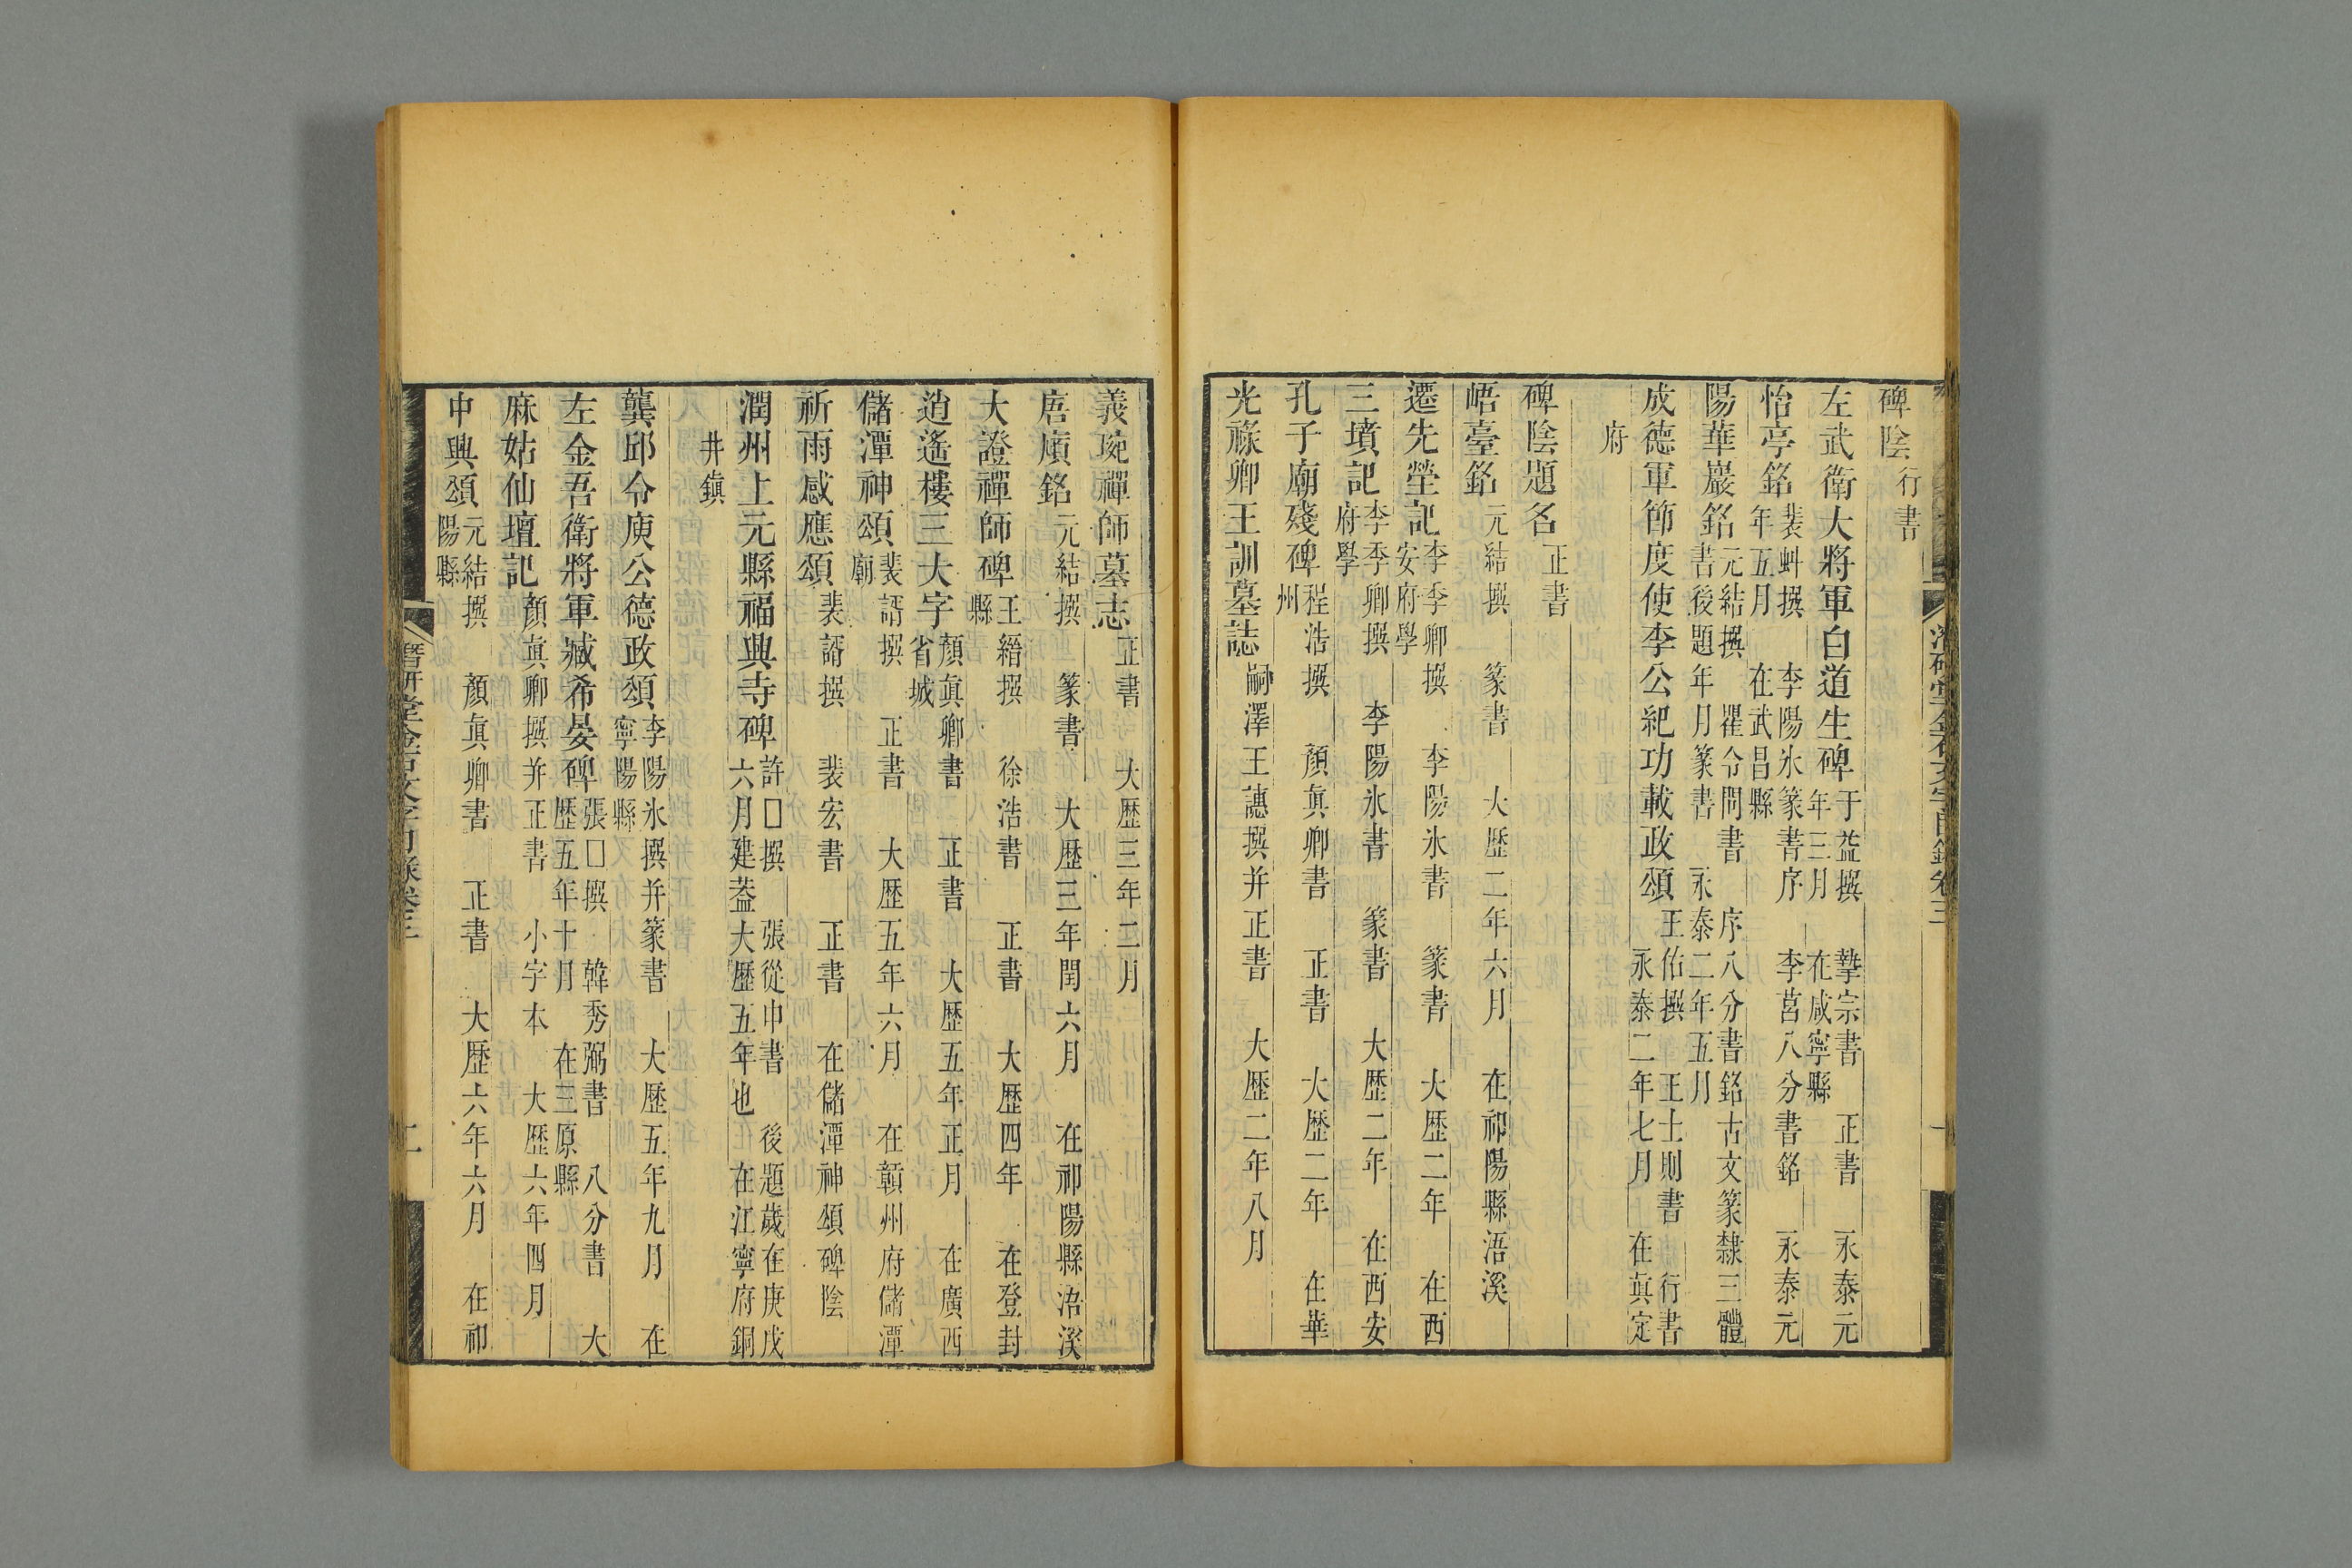 碑陰行書
左武衛大將軍白道生碑于益撰　摯宗書　正書　永泰元
年三月　在咸寧縣
怡亭銘裴虬撰　李陽冰篆書序　李莒八分書銘　永泰元
年五月　在武昌縣
陽華巖銘元結撰　瞿令問書　序八分書銘古文篆隸三體
書後題年月篆書　永泰二年五月
成德軍節度使李公紀功載政頌王佑撰　王士則書　行書
永泰二年七月　在真定
府
碑陰題名正書
峿臺銘元結撰　篆書　大歷二年六月　在祁陽縣浯溪
遷先塋記李季卿撰　李陽冰書　篆書　大歷二年　在西
安府學
三墳記李季卿撰　李陽冰書　篆書　大歷二年　在西安
府學
孔子廟殘碑程浩撰　顏真卿書　正書　大歷二年　在華
州
光祿卿王訓墓誌嗣澤王譓撰并正書　大歷二年八月
潛研堂金石文字目錄卷三
義琬禪師墓志正書　大歷三年二月
㢈㢠銘元結撰　篆書　大歷三年閏六月　在祁陽縣浯溪
大證禪師碑王縉撰　徐浩書　正書　大歷四年　在登封
縣
逍遙樓三大字顏真卿書　正書　大歷五年正月　在廣西
省城
儲潭神頌裴諝撰　正書　大歷五年六月　在贛州府儲潭
廟
祈雨感應頌裴諝撰　裴宏書　正書　在儲潭神頌碑陰
潤州上元縣福興寺碑許□撰　張從申書　後題歲在庚戌
六月建蓋大歷五年也　在江寧府銅
井鎮
龔邱令庾公德政頌李陽冰撰并篆書　大歷五年九月　在
寧陽縣
左金吾衛將軍臧希晏碑張□撰　韓秀弼書　八分書　大
歷五年十月　在三原縣
麻姑仙壇記顏真卿撰并正書　小字本　大歷六年四月
中興頌元結撰　顏真卿書　正書　大歷六年六月　在祁
陽縣
潛研堂金石文字目錄卷三　二